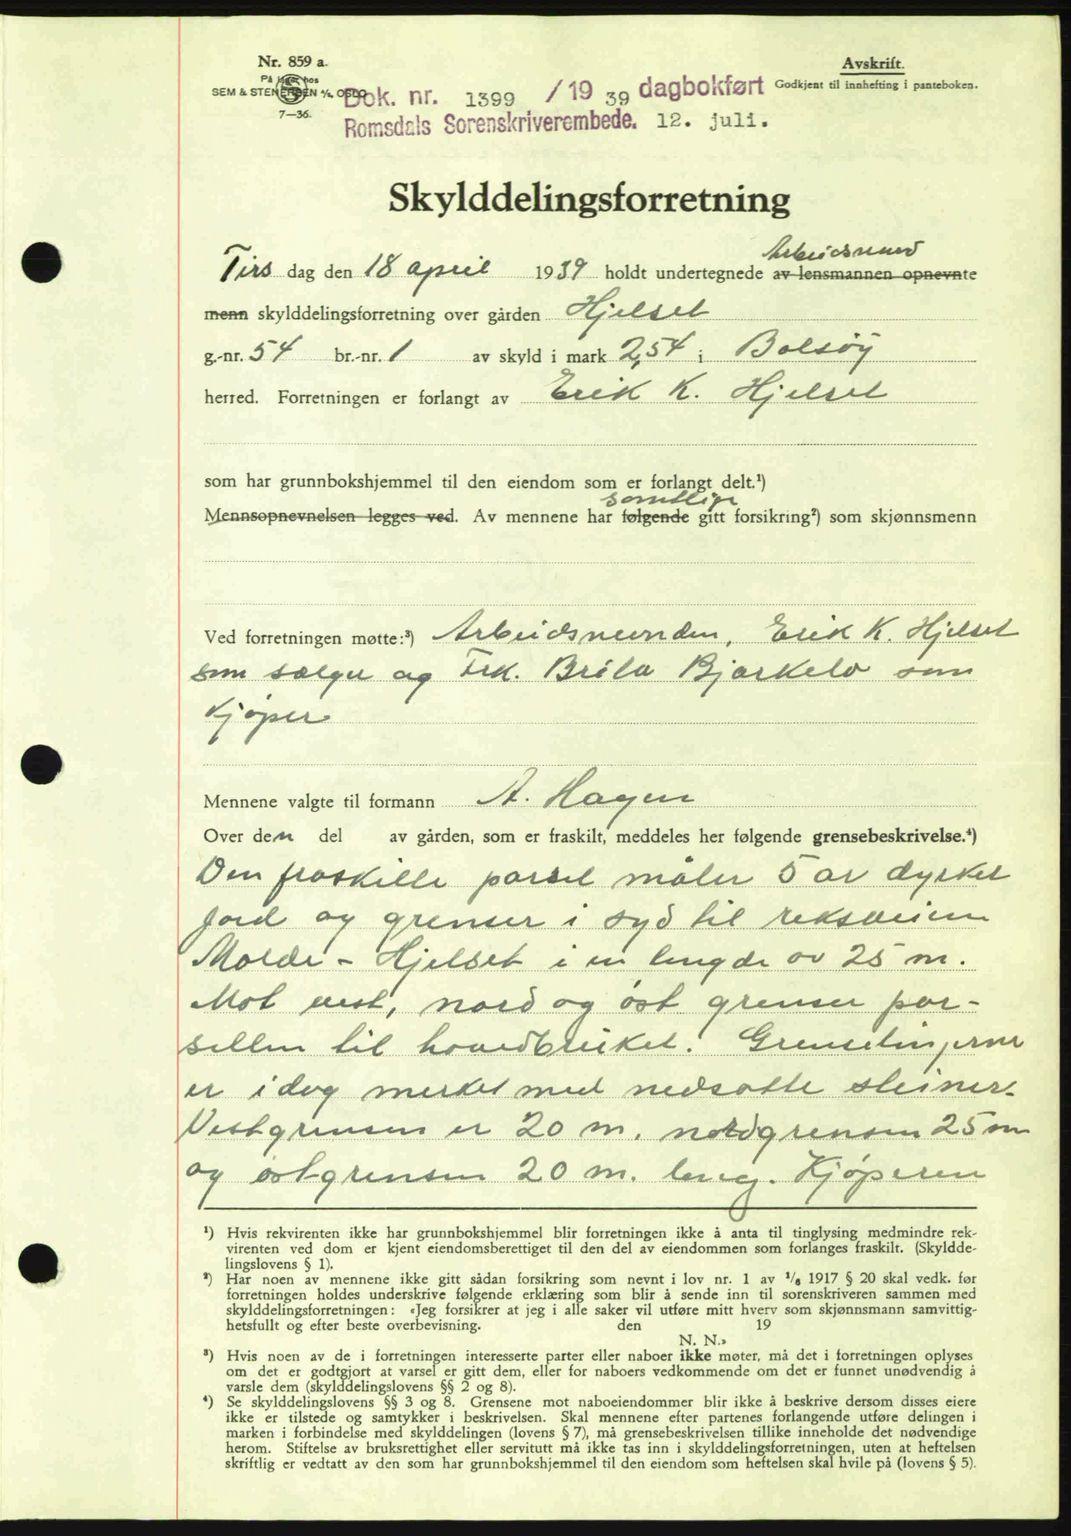 Nr. 859 a.
På lager hos
SEM & STENERSEN A/S, OSLO
7—36.
Avskrift.
Godkjent til innhefting i panteboken.
Dok. nr. 1399 / 19 39 dagbokført
Romsdals Sorenskriverembede. 12. juli.
Skylddelingsforretning
Arbeidsnevnd
Tirs dag den 18 april 1939 holdt undertegnede av lensmannen opnevnte
menn skylddelingsforretning over gården Hjelset
g.-nr. 54 br.-nr. 1 av skyld i mark 2,54 i Bolsøy
herred. Forretningen er forlangt av Erik K. Hjelset
som har grunnbokshjemmel til den eiendom som er forlangt delt.¹)
samtlige
Mennsopnevnelsen legges ved. Av mennene har følgende gitt forsikring²) som skjønnsmenn
Ved forretningen møtte:³) Arbeidsnevnden, Erik K. Hjelset
som sælger og Frk. Brita Bjørkelo som
kjøper
Mennene valgte til formann A. Hagen
Over den del av gården, som er fraskilt, meddeles her følgende grensebeskrivelse.⁴)
Den fraskilte parsel måler 5 ar dyrket
jord og grenser i syd til riksveien
Molde - Hjelset i en lengde av 25 m.
Mot vest, nord og øst grenser par-
sellen til hovedbruket. Grenselinjerne
er idag merket med nedsatte steiner.
Vestgrensen er 20 m, nordgrensen 25 m
og østgrensen 20 m. lang. Kjøperen
¹) Hvis rekvirenten ikke har grunnbokshjemmel blir forretningen ikke å anta til tinglysing medmindre rek-
virenten ved dom er kjent eiendomsberettiget til den del av eiendommen som forlanges fraskilt. (Skyldde-
lingslovens § 1).
²) Har noen av mennene ikke gitt sådan forsikring som nevnt i lov nr. 1 av ¹/₆ 1917 § 20 skal vedk. før
forretningen holdes underskrive følgende erklæring som blir å sende inn til sorenskriveren sammen med
skylddelingsforretningen: «Jeg forsikrer at jeg i alle saker vil utføre mitt hverv som skjønnsmann samvittig-
hetsfullt og efter beste overbevisning. den 19
N. N.»
³) Hvis noen av de i forretningen interesserte parter eller naboer ikke møter, må det i forretningen oplyses
om det er godtgjort at varsel er gitt dem, eller for naboers vedkommende om det er funnet unødvendig å
varsle dem (skylddelingslovens §§ 2 og 8).
⁴) Se skylddelingslovens §§ 3 og 8. Grensene mot naboeiendommer blir ikke å beskrive dersom disses eiere
ikke er tilstede og samtykker i beskrivelsen. Skal mennene efter partenes forlangende utføre delingen i
marken i forbindelse med skylddelingen (lovens § 7), må grensebeskrivelsen tillike inneholde det nødvendige
herom. Stiftelse av bruksrettighet eller servitutt må ikke tas inn i skylddelingsforretningen, uten at heftelsen
skriftlig er vedtatt av den som har grunnbokshjemmel til den eiendom som heftelsen skal hvile på (lovens § 5).